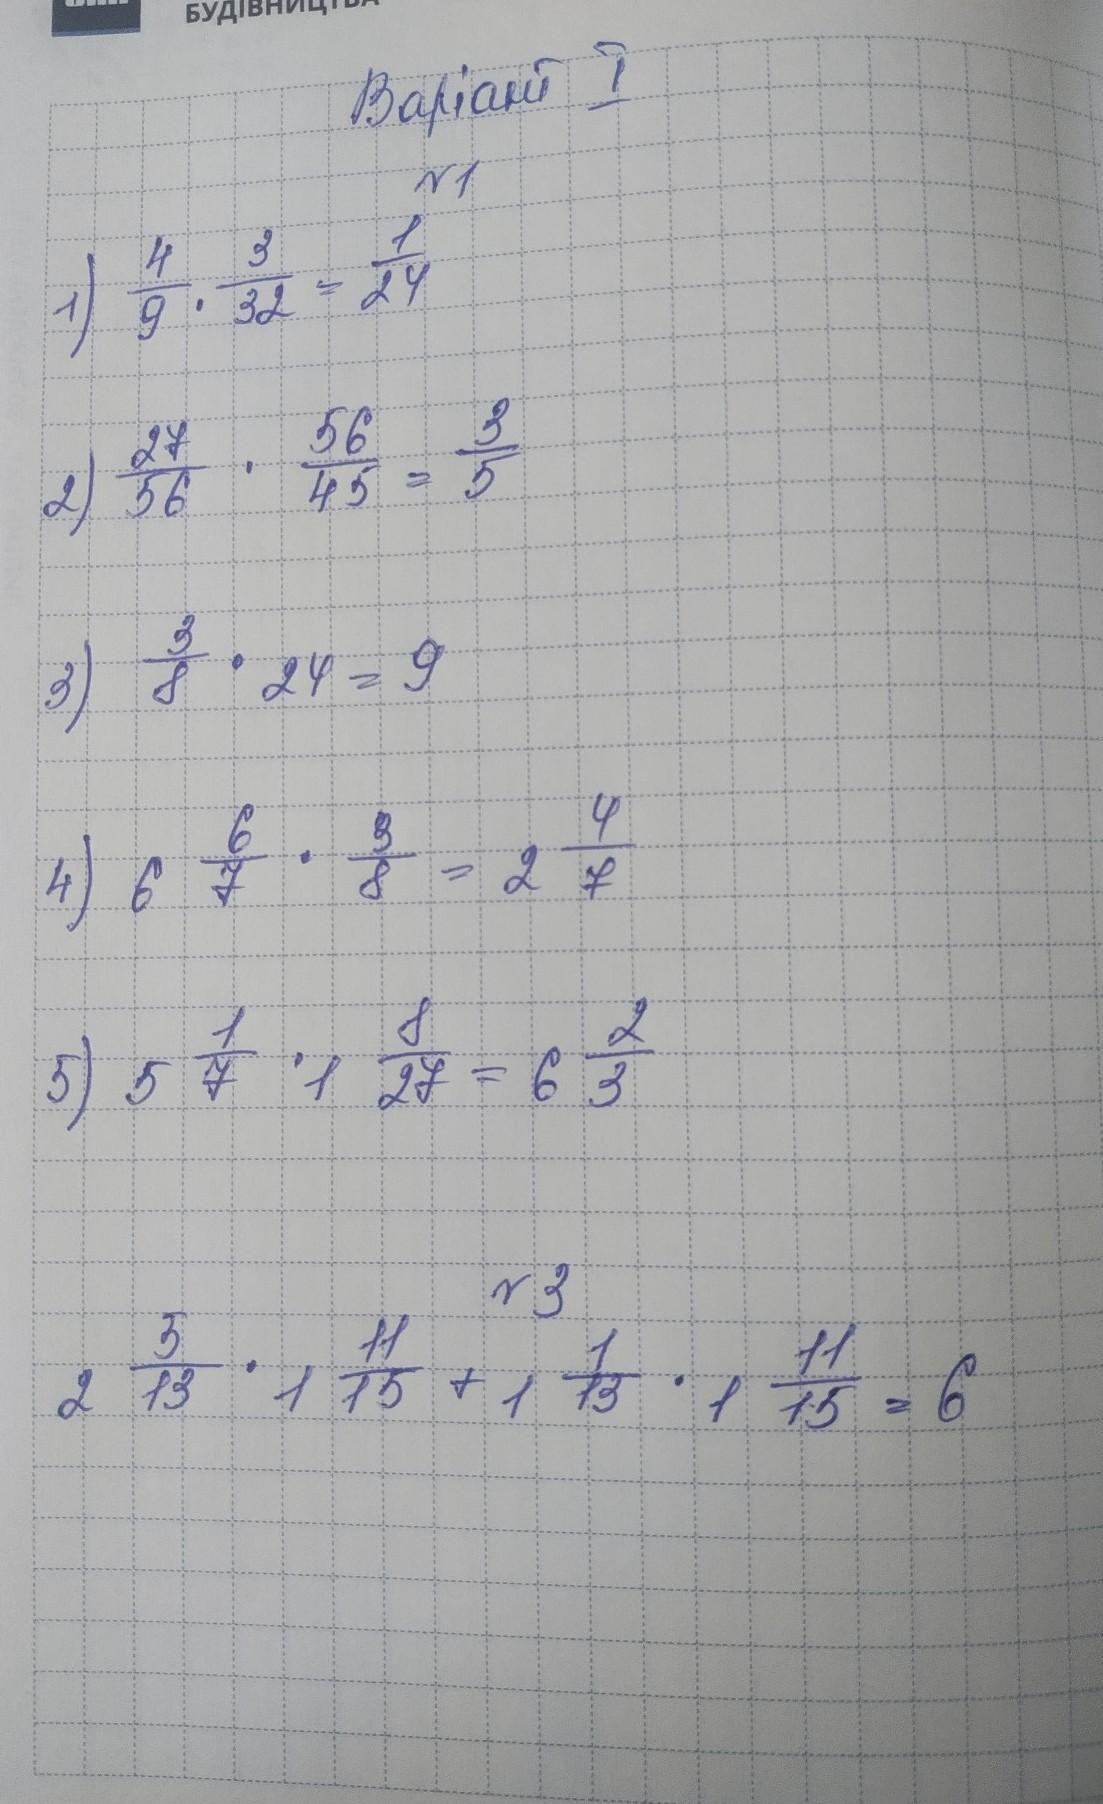 БУДІВНИЦТВА
Варіант I
№1
1) 4/9 · 3/32 = 1/24
2) 27/56 · 56/45 = 3/5
3) 3/8 · 24 = 9
4) 6 6/7 · 3/8 = 2 4/7
5) 5 1/7 · 1 8/27 = 6 2/3
№3
2 5/13 · 1 11/15 + 1 1/13 · 1 11/15 = 6